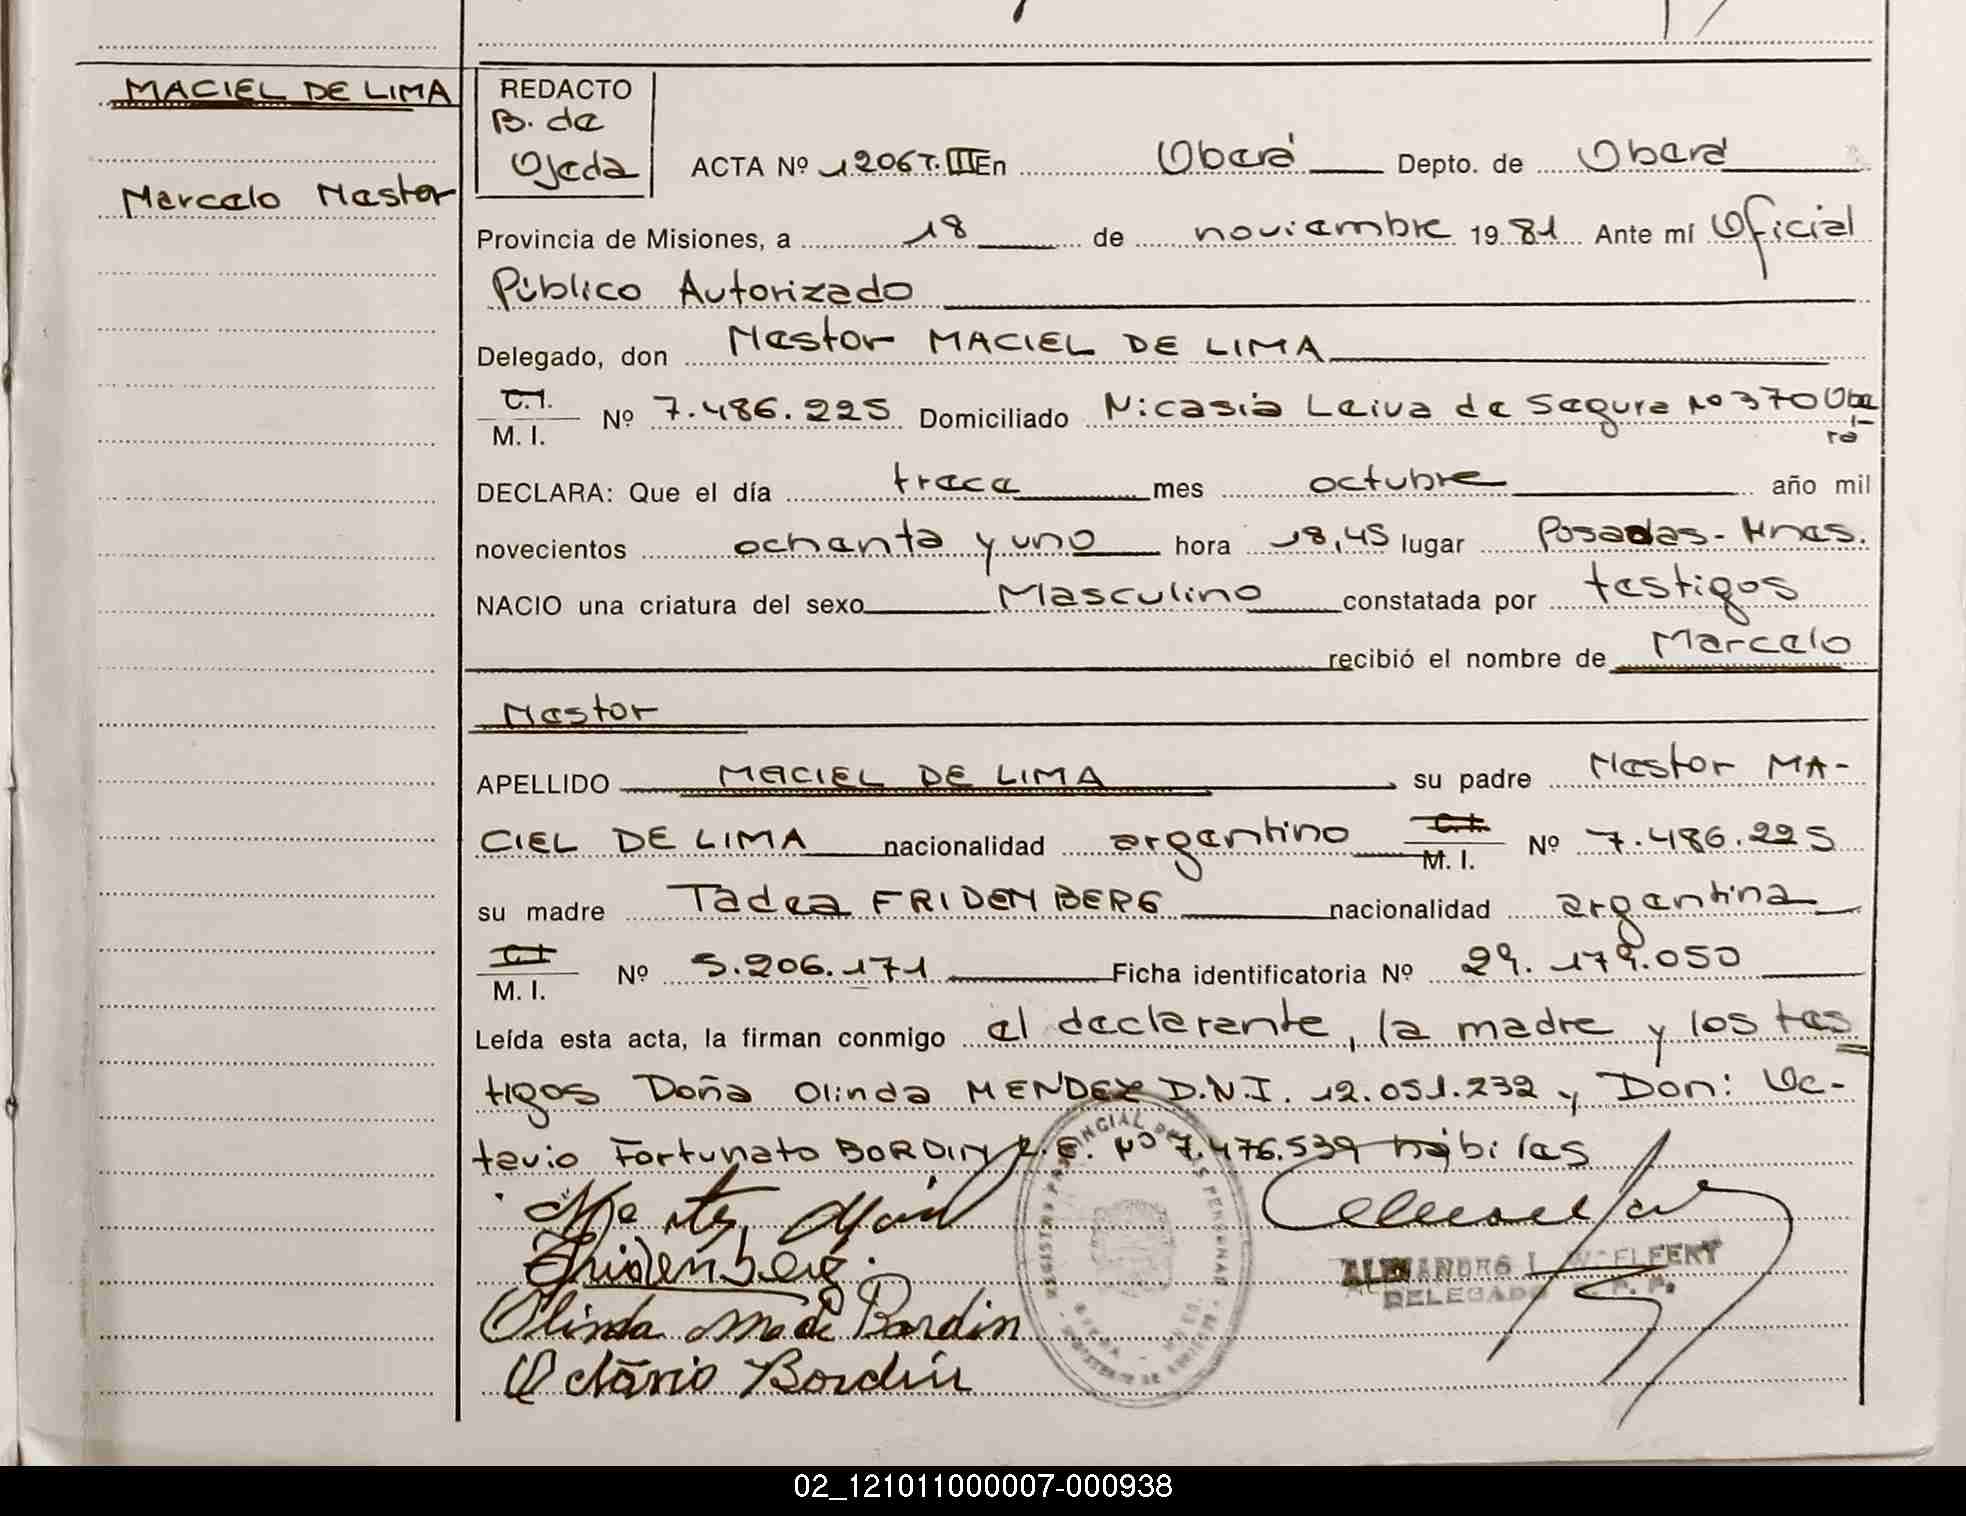 MACIEL DE LIMA
Marcelo Nestor
REDACTO
B. de
Ojeda
ACTA Nº 1206 T. III En Oberá Depto. de Oberá
Provincia de Misiones, a 18 de noviembre 19 81 Ante mí Oficial
Público Autorizado
Delegado, don Nestor MACIEL DE LIMA
C.I.
M. I. Nº 7.486.225 Domiciliado Nicasia Leiva de Segura Nº 370 Obe
rá
DECLARA: Que el día trece mes octubre año mil
novecientos ochenta y uno hora 18,45 lugar Posadas - Mnes.
NACIO una criatura del sexo Masculino constatada por testigos
recibió el nombre de Marcelo
Nestor
APELLIDO MACIEL DE LIMA su padre Nestor MA-
CIEL DE LIMA nacionalidad argentino C.I. M. I. Nº 7.486.225
su madre Tadea FRIDENBERG nacionalidad argentina
C.I.
M. I. Nº 5.206.171 Ficha identificatoria Nº 29.179.050
Leída esta acta, la firman conmigo el declarante, la madre y los tes
tigos Doña Olinda MENDEZ D.N.I. 12.051.232 y Don: Oc-
tavio Fortunato BORDIN L.E. Nº 7.476.539 hábiles
Fridenberg.
Olinda M de Bordin
Octavio Bordin
REGISTRO PROVINCIAL DE LAS PERSONAS
DELEGADO
02_121011000007-000938